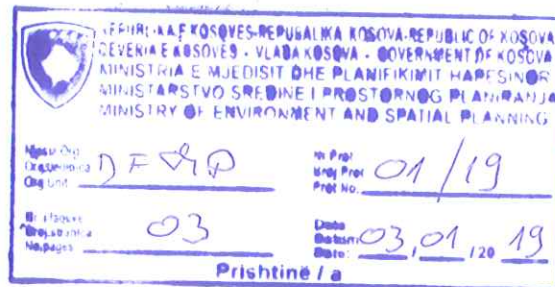 REPUBLIKA E KOSOVËS-REPUBLIKA KOSOVA-REPUBLIC OF KOSOVA
QEVERIA E KOSOVËS - VLADA KOSOVA - GOVERNMENT OF KOSOVA
MINISTRIA E MJEDISIT DHE PLANIFIKIMIT HAPESINOR
MINISTARSTVO SREDINE I PROSTORNOG PLANIRANJA
MINISTRY OF ENVIRONMENT AND SPATIAL PLANNING
Njesia Org
Org. Unit
Nr Prot
Broj Prot
Prot No. 01/19
Nr. i faqeve
Broj stranica
No. pages 03
Data
Datum
Date: 03,01 / 20 19
Prishtinë / a